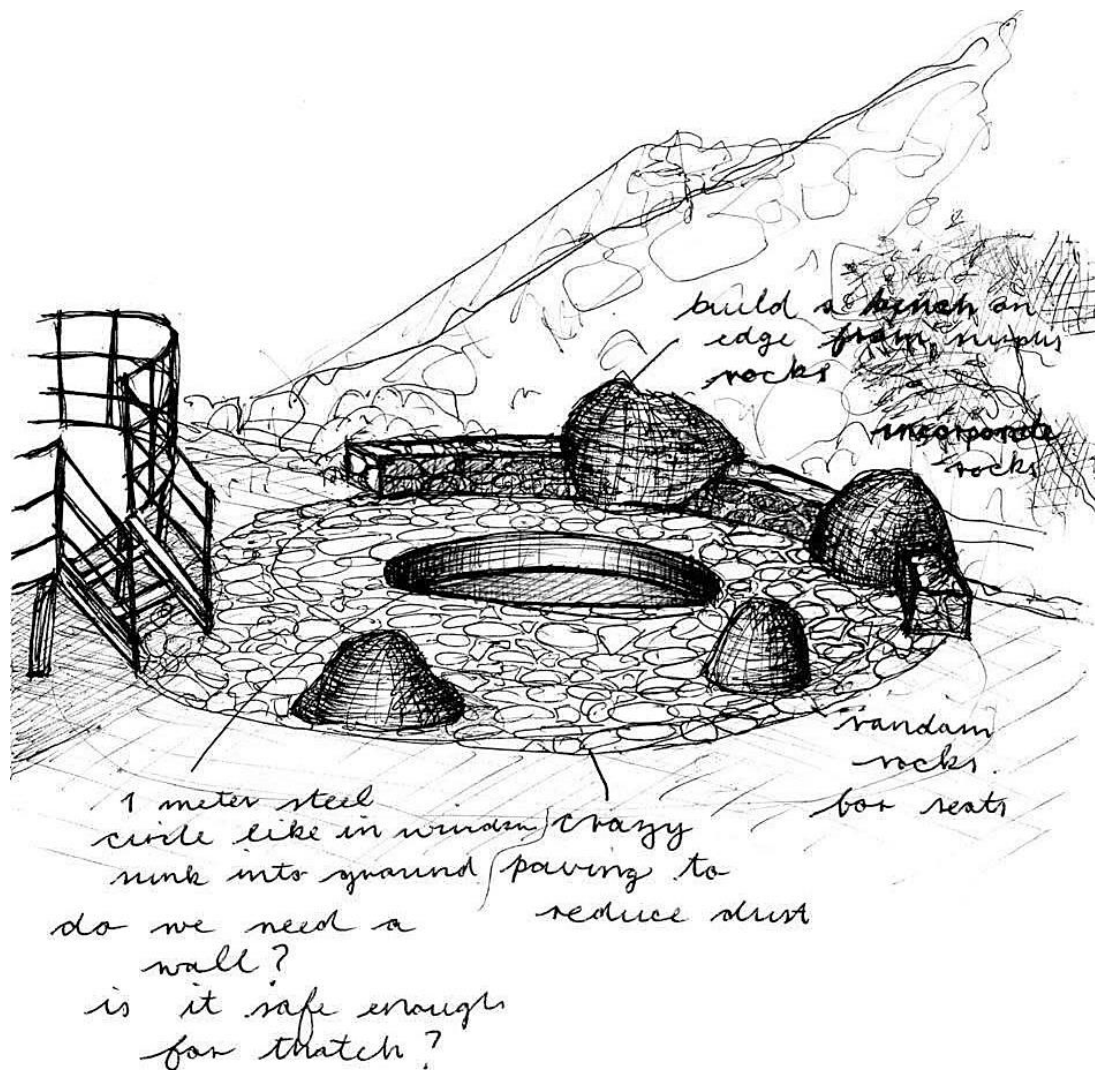 build a bench on
edge from surplus
rocks
incorporate
rocks
random
rocks
for seats
1 meter steel
circle like in
sunk into ground
crazy
paving to
reduce dust
do we need a
wall?
is it safe enough
for thatch?